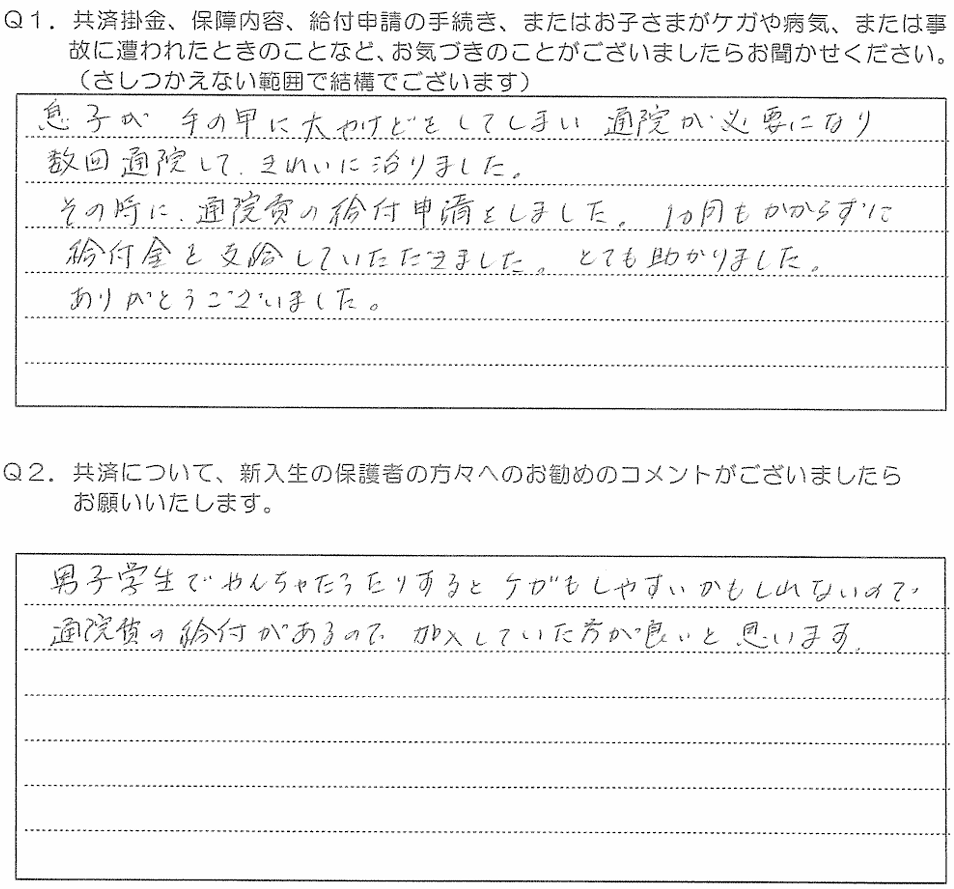 Q1．共済掛金、保障内容、給付申請の手続き、またはお子さまがケガや病気、または事
故に遭われたときのことなど、お気づきのことがございましたらお聞かせください。
（さしつかえない範囲で結構でございます）
息子が 手の甲に大やけどをしてしまい 通院が必要になり
数回通院して、きれいに治りました。
その時に、通院費の給付申請をしました。1ヵ月もかからずに
給付金を支給していただきました。とても助かりました。
ありがとうございました。
Q2．共済について、新入生の保護者の方々へのお勧めのコメントがございましたら
お願いいたします。
男子学生でやんちゃだったりするとケガもしやすいかもしれないので、
通院費の給付があるので 加入していた方が良いと思います。